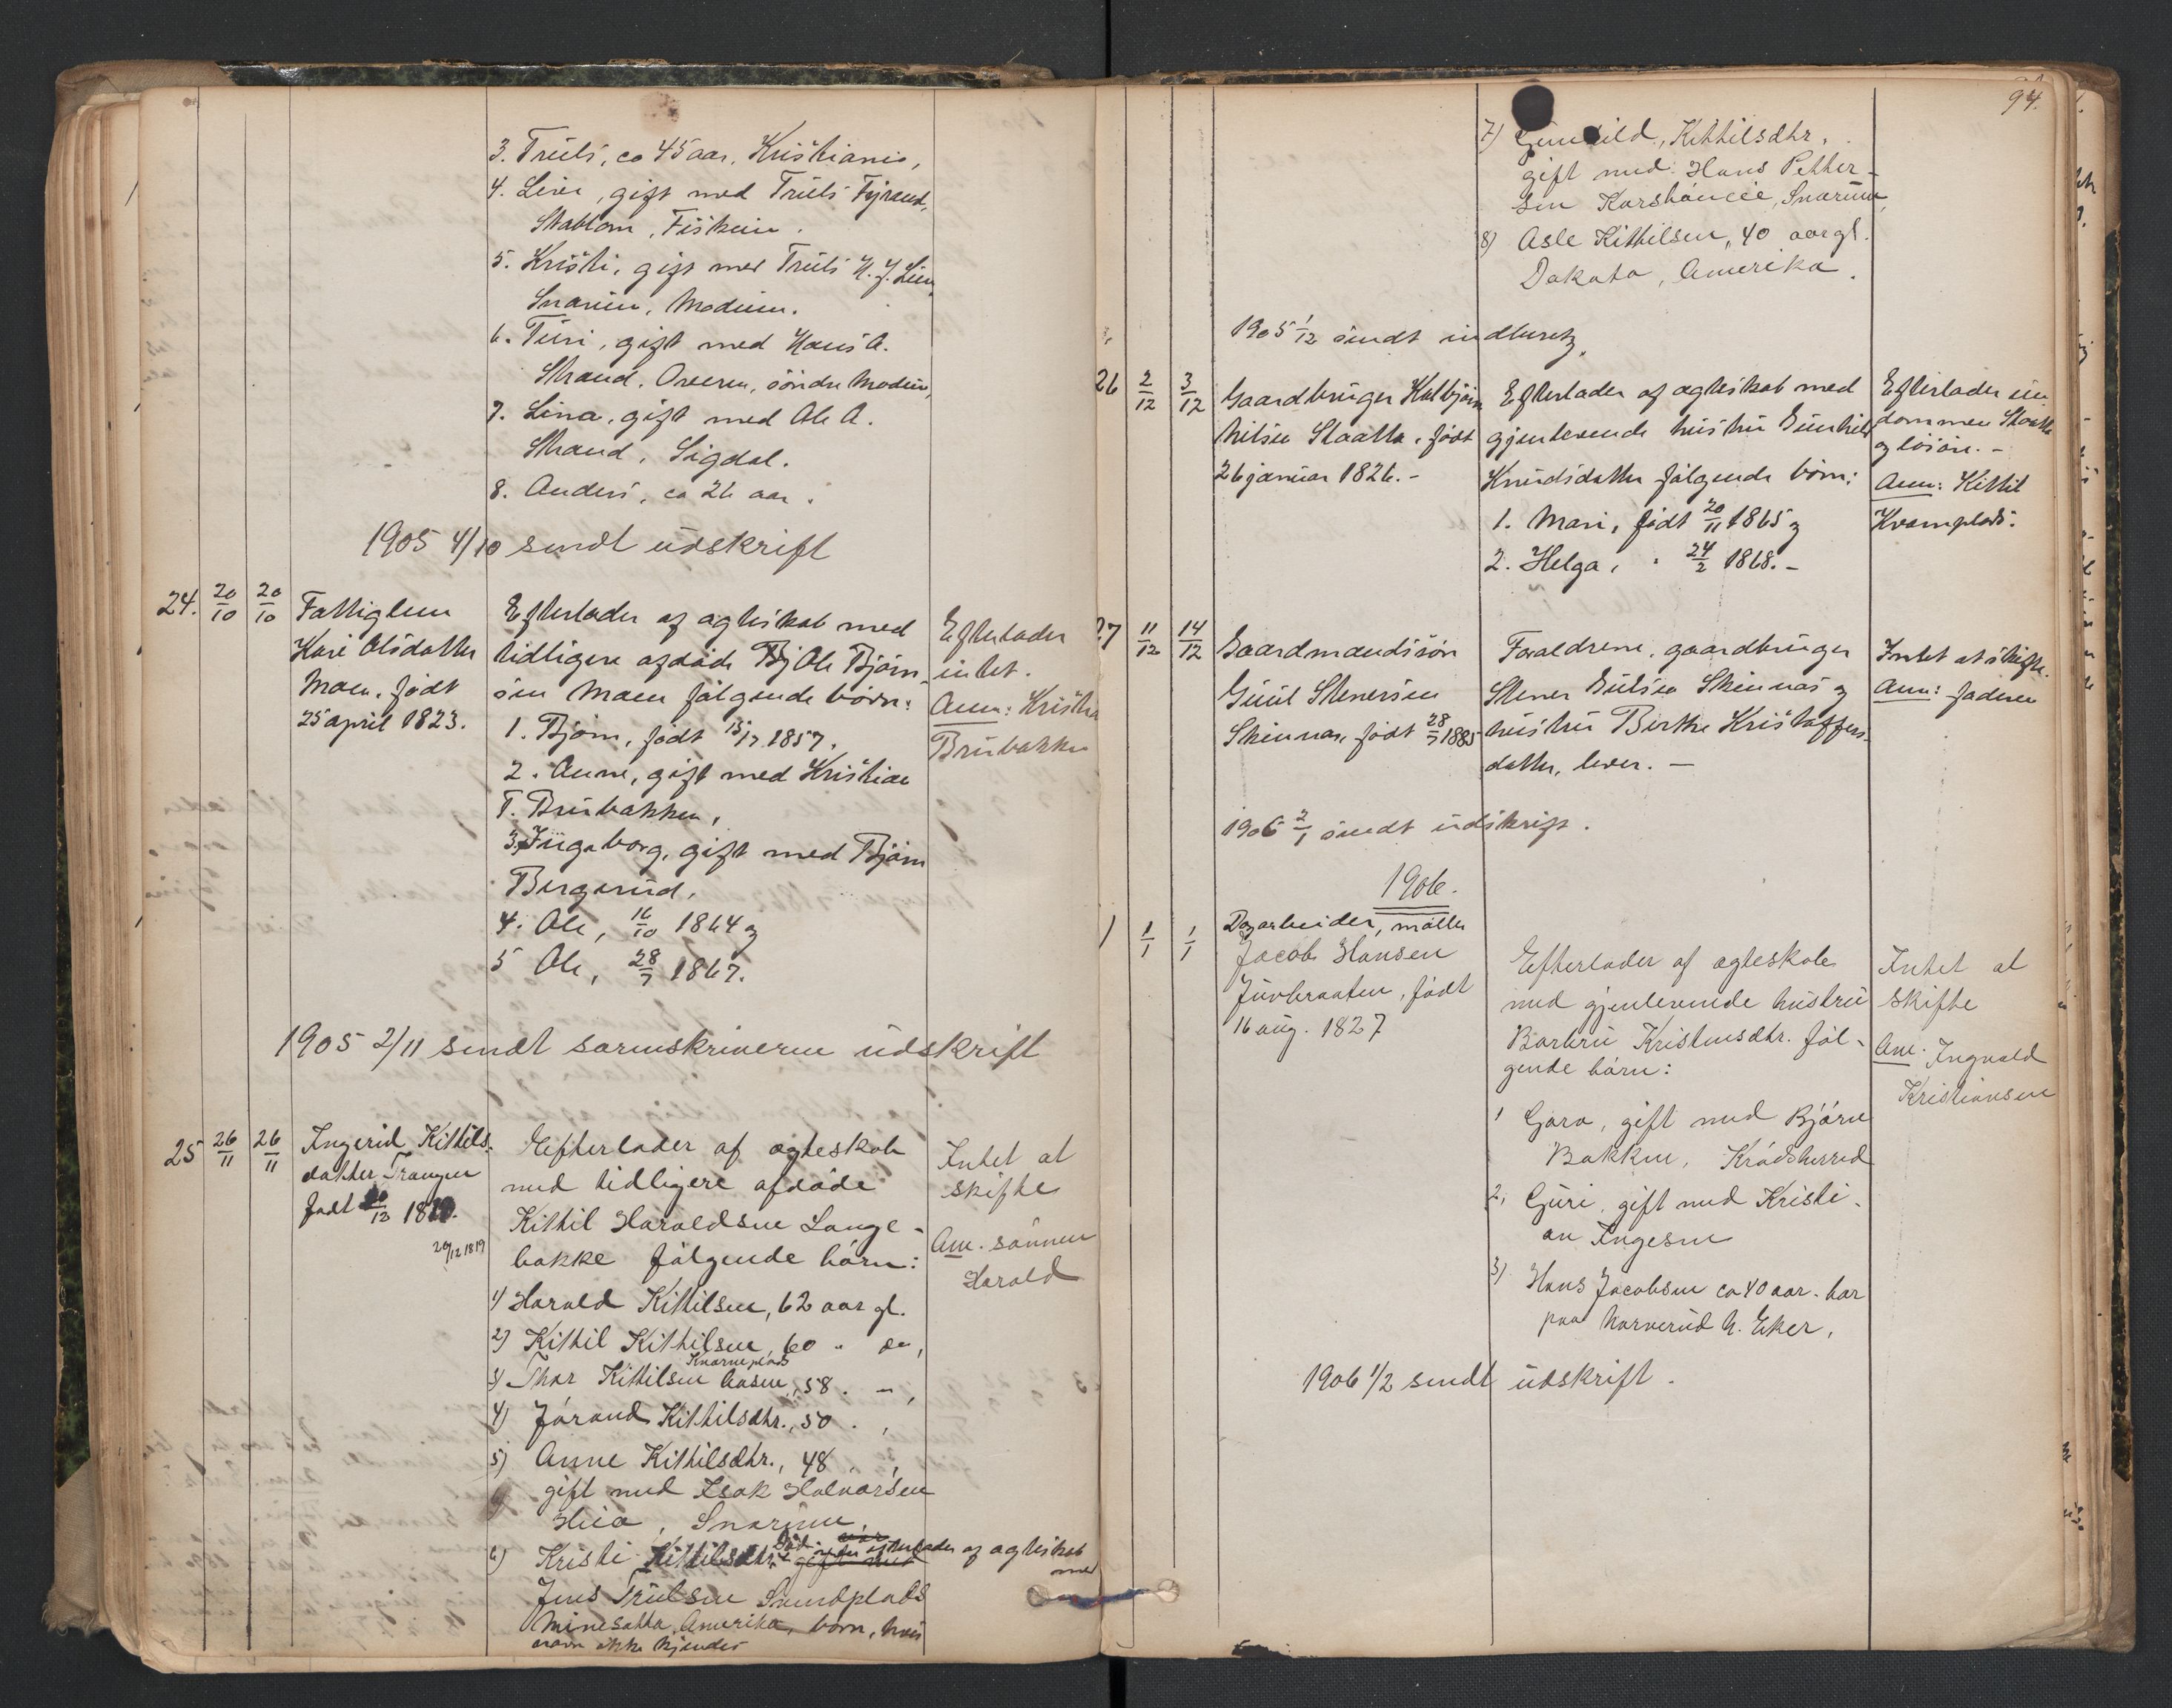 3. Truls, ca 45 aar, Kristiania,
4. Live, gift med Truls Fyrand,
Stablom, Fiskum.
5. Kristi, gift med Truls N. J. Lien
Snarum, Modum.
6. Turi, gift med Hans A.
Strand, Overn, söndre Modum,
7. Lina, gift med Ole A.
Strand, Sigdal.
8. Anders, ca 26 aar.
1905 4/10 sendt udskrift
24. 20/10 20/10 Fattiglem
Kari Olsdatter
Moen, født
25 april 1823.
Efterlader af ægteskab med
tidligere afdøde Ole Björn-
sen Moen følgende børn:
1. Björn, født 15/7 1857.
2. Anne, gift med Kristian
T. Brubakken,
3. Ingeborg, gift med Björn
Bergerud,
4. Ole, 16/10 1864 og
5 Ole, 28/7 1867.
Efterlader
intet.
Anm: Kristian
Brubakken
1905 2/11 sendt sorenskriveren udskrift
25 26/11 26/11 Ingerid Kittils-
datter Trangen
født 20/12 1819.
20/12 1819
Efterlader af ægteskab
med tidligere afdøde
Kittil Haraldsen Lange-
bakke følgende børn:
1) Harald Kittilsen, 62 aar gl.
2) Kittil Kittilsen, 60 " do,
Knarneplads
3) Thor Kittilsen , 58 . — ,
4) Jørand Kittilsdtr., 50 . ,
5) Anne Kittilsdtr., 48 . ,
gift med Isak Halvorsen
Hica, Snarum,
6) Kristi Kittilsdtr. Død efterlader af ægteskab
med
Jens Trulsen Sundplads
Minesotta, Amerika, børn, hvis
navn ikke kjendes
Intet at
skifte
Anm. sønnen
Harald
94.
7) Gunhild, Kittilsdtr,
gift med Hans Petter-
sen Korshaugeie, Snarum,
8) Asle Kittilsen, 40 aar gl.
Dakota, Amerika.
1905 1/12 sendt indberetg.
26 2/12 3/12 Gaardbruger Kolbjörn
Nilsen Staatta, født
26 januar 1826.-
Efterlader af ægteskab med
gjenlevende hustru Gunhild
Knudsdatter følgende børn:
1. Mari, født 20/11 1865 og
2. Helga, " 24/2 1868.-
Efterlader ein
dommen Staatta
og løsøre.-
Anm: Kittil
Kvamplads.
27 11/12 14/12 Gaardmandssøn
Guul Stenersen
Skinnæs, født 28/7 1885
Forældrene, gaardbruger
Stener Gulsen Skinnæs og
hustru Berthe Kristoffers-
datter, lever. —
Intet at skifte.
Anm: faderen
1906 2/1 sendt udskrift.
1906.
1 1/1 1/1 Dagarbeider, møller
Jacob Hansen
Juvbraaten, født
16 aug. 1827
Efterlader af ægteskab
med gjenlevende hustru
Barbru Kristensdtr. føl-
gende børn:
1 Goro, gift med Björn
Bakken, Krødsherred
2, Guri, gift med Kristi-
an Ingesen
3) Hans Jacobsen ca 40 aar. bor
paa Narverud N. Eker.
Intet at
skifte
Anm. Ingvald
Kristiansen
1906 1/2 sendt udskrift.